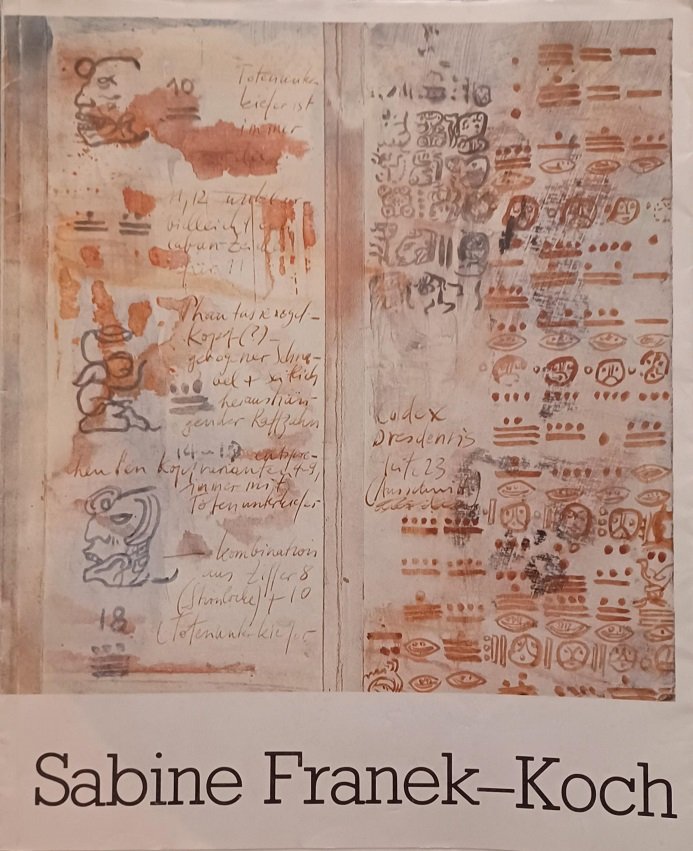 10
Totenunter-
kiefer ist
immer
11, 12
vielleicht
für 11
Phantasievogel-
Kopf (?) -
gebogner Schna-
bel + seitlich
heraushän-
gender Raffzahn
14-19 entspre-
chen den Kopfvarianten 4-9,
immer mit
Totenunterkiefer
Kombination
aus Ziffer 8
(Stirnlocke) + 10
(Totenunterkiefer
18
Codex
Dresdensis
Seite 23
(Ausschnitt
Sabine Franek–Koch